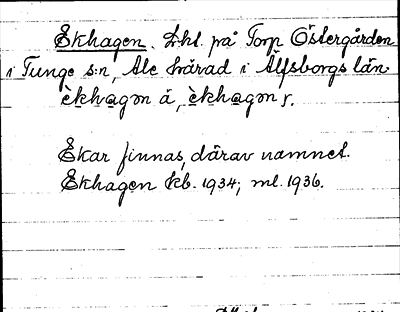 Ekhagen. Lht. på Torp Östergården
i Tunge s:n, Ale härad i Älfsborgs län.
èkhagən å, èkhagən s.
Ekar finnas, därav namnet.
Ekhagen kb. 1934; ml. 1936.